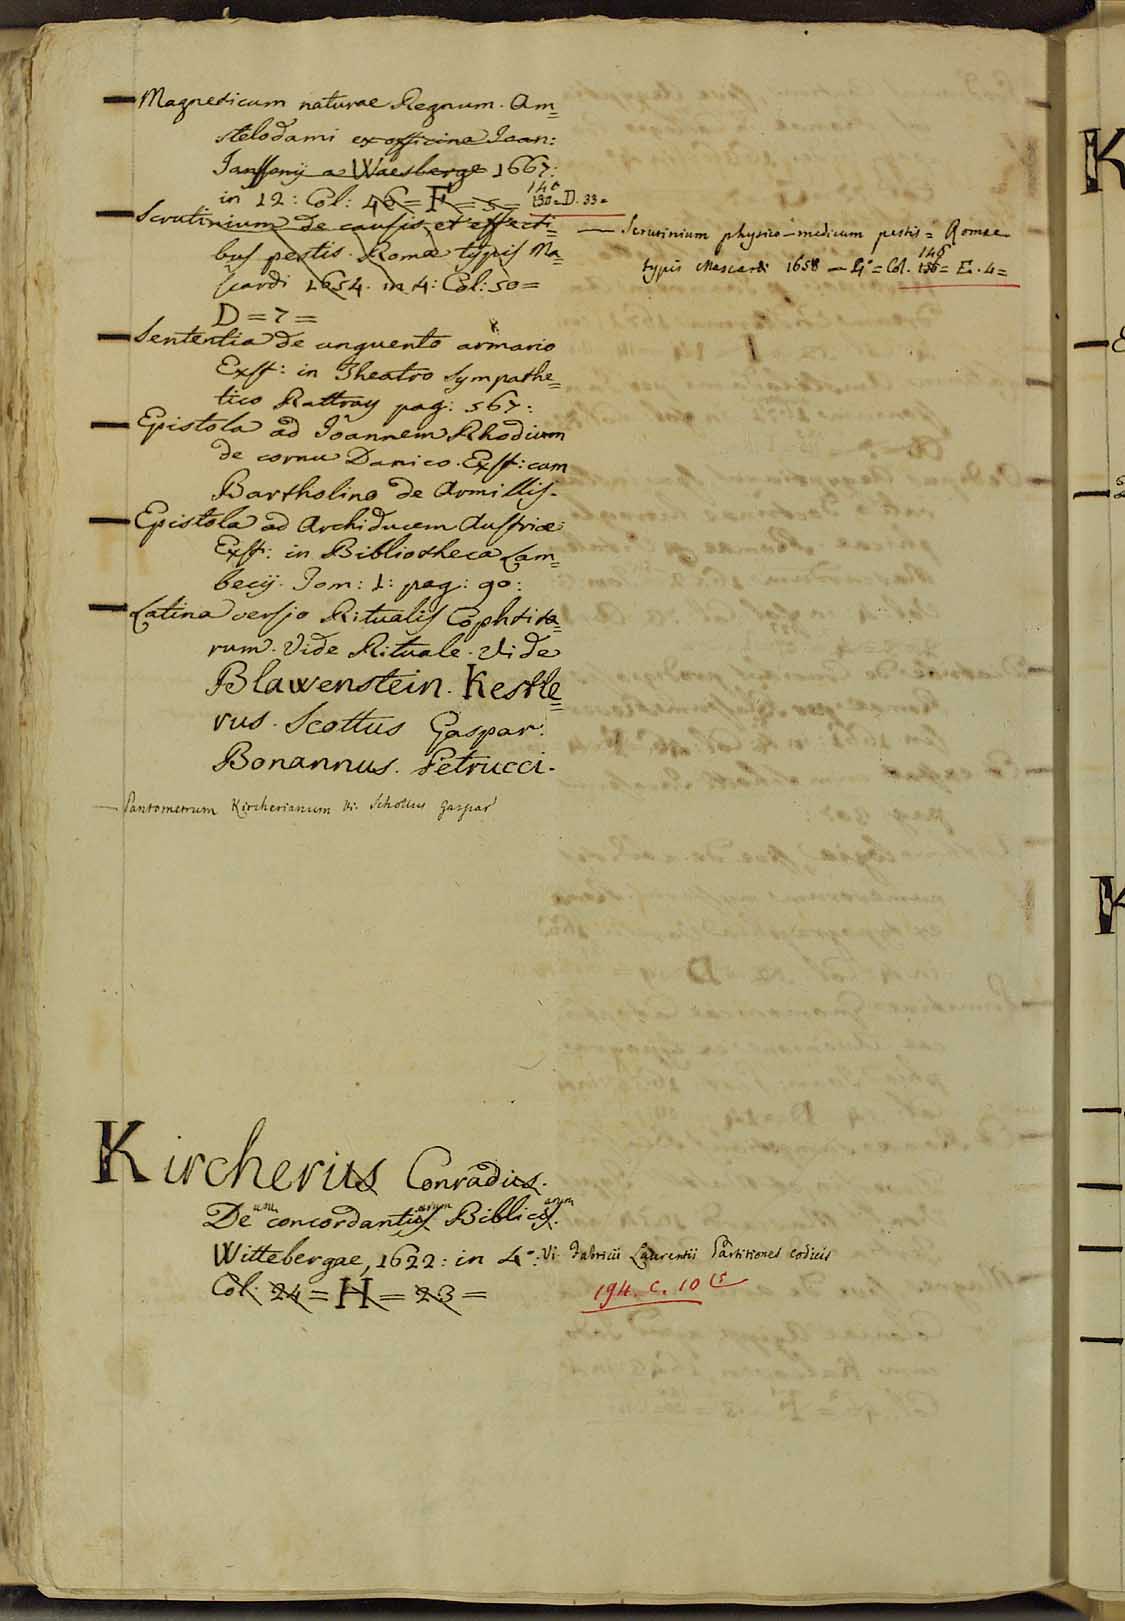 Magneticum naturae Regnum. Am=
stelodami ex officina Joan:
Janssonij a Waesberge 1667:
in 12: Col: 46 = F = 5 = 130 = D. 33 =
146
Scrutinium de causis et effecti=
bus pestis. Romæ typis Ma=
scardi 1654. in 4: Col: 50 =
D = 7 =
— Scrutinium physico-medicum pestis = Romae
typis Mascardi 1658 — 4° = Col. 136 = E. 4 =
146
Sententia de unguento armario
Exst: in Theatro Sympathe=
tico Rattray pag: 567:
Epistola ad Joannem Rhodium
de cornu Danico. Exst: cum
Bartholino de Armillis.
Epistola ad Archiducem Austriæ:
Exst: in Bibliotheca Lam=
becij. Tom: 1: pag: 90:
Latina versio Ritualis Cophtita=
rum. Vide Rituale. Vide
Blawenstein. Kestle=
rus. Scottus Gaspar.
Bonannus. Petrucci.
— Pantometrum Kircherianum Vi. Schottus Gaspar
Kircherius Conradus.
De concordantiis Biblicis.
um arum arum
Wittebergae, 1622: in 4°: Vi. Fabricii Laurentii Partitiones codicis
Col: 24 = H = 23 =
194. C. 10